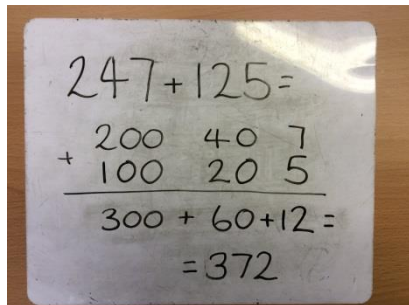 247+125=
200 40 7
+ 100 20 5
300 + 60+12 =
=372